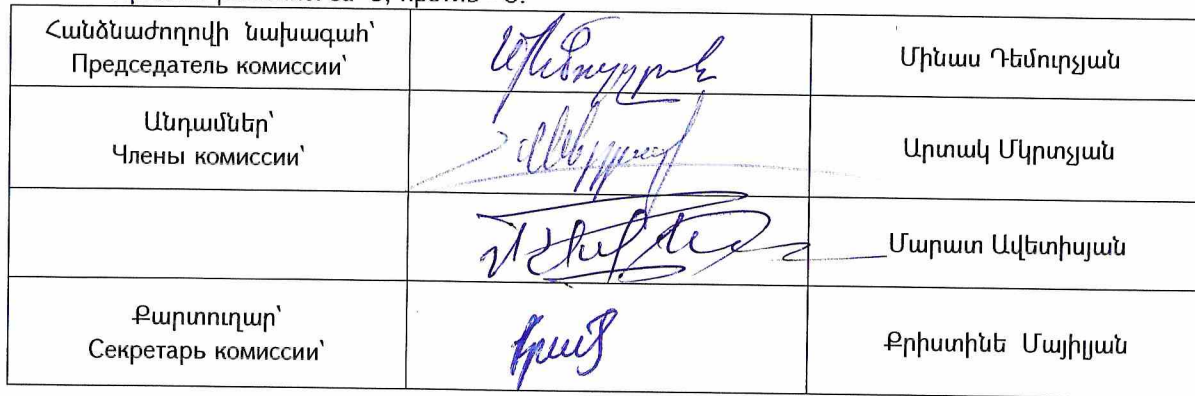 Հանձնաժողովի նախագահ՝
Председатель комиссии՝
Մինաս Դեմուրչյան
Անդամներ՝
Члены комиссии՝
Արտակ Մկրտչյան
Մարատ Ավետիսյան
Քարտուղար՝
Секретарь комиссии՝
Քրիստինե Մայիլյան